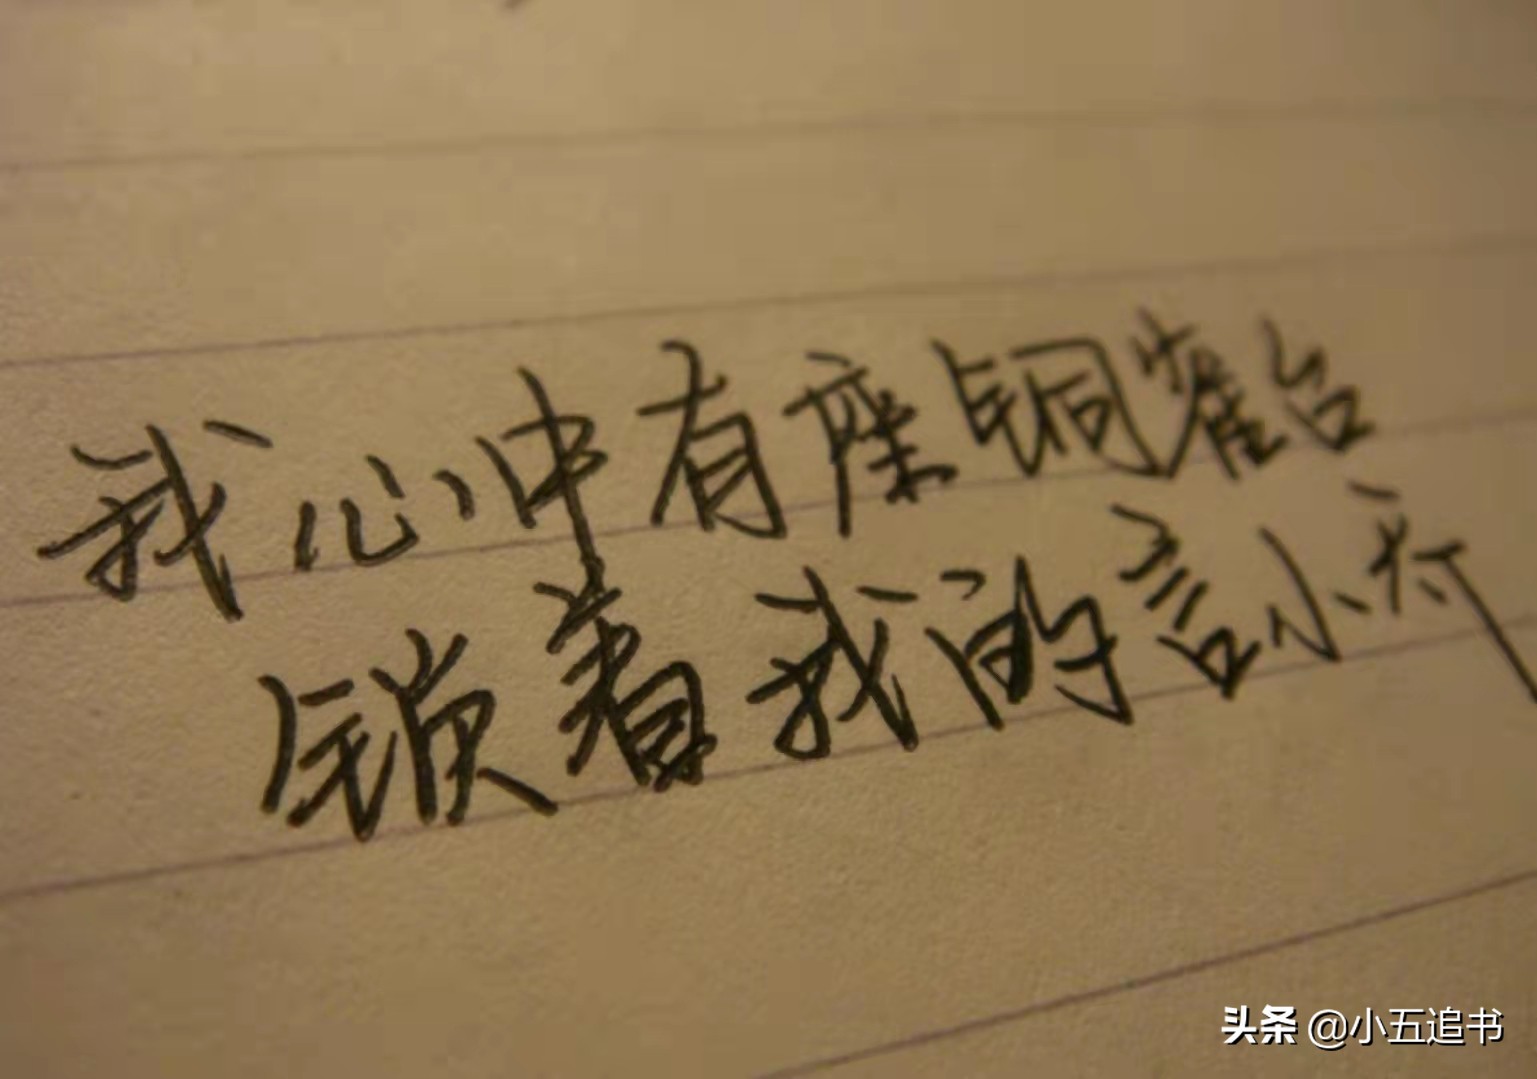 我心中有座铜雀台
锁着我的言小天
头条 @小五追书